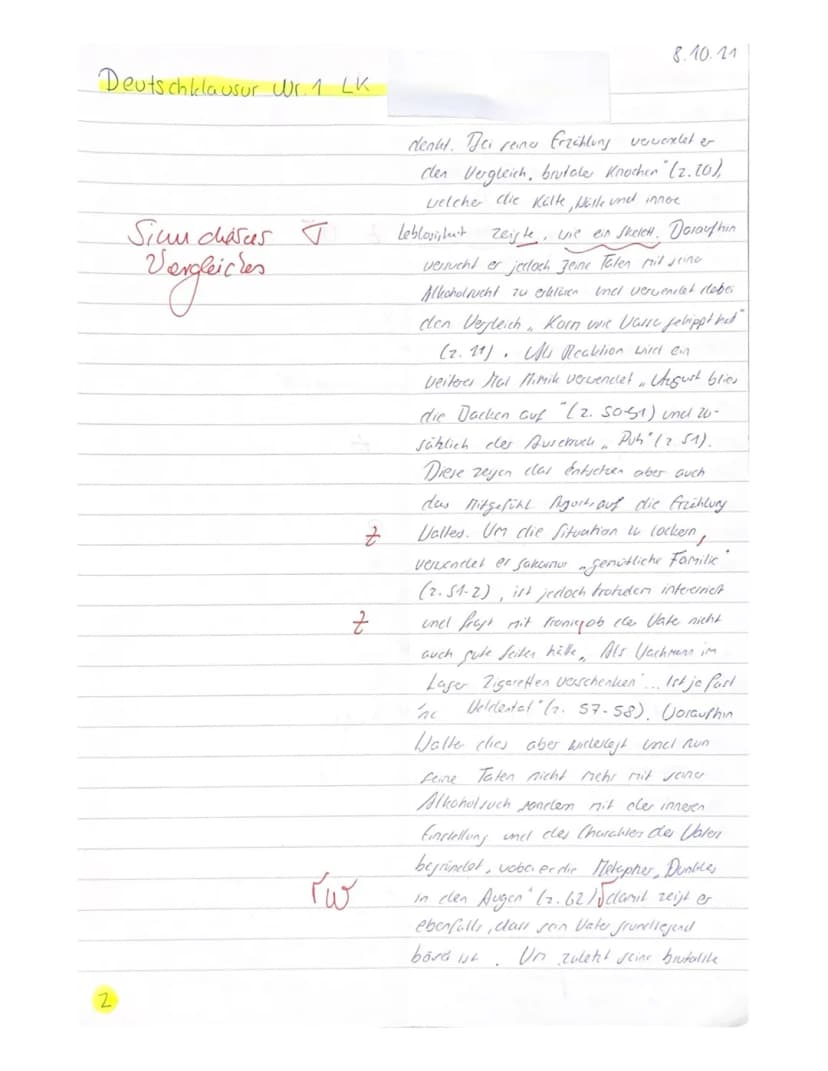 8.10.21
Deutschklausur Nr. 1 LK
denkt. Bei seiner Erzählung verwendet er
den Vergleich „brutaler Knochen" (z. 20),
welcher die Kälte, Härte und innere
Sinn dieses Γ
Vergleiches
Leblosigkeit zeigte, wie ein Skelett. Daraufhin
versucht er jedoch seine Taten mit seiner
Alkoholsucht zu erklären und verwendet dabei
den Vergleich „Korn wie Wasser gekippt hat"
(z. 21). Als Reaktion wird ein
weiteres Mal Mimik verwendet „August blies
die Backen auf" (z. 50-51) und zu-
sätzlich der Ausdruck „Puh" (z 51).
Diese zeigen das Entsetzen aber auch
das Mitgefühl Augusts auf die Erzählung
Z Walters. Um die Situation zu lockern,
verwendet er „gemütliche Familie"
(z. 51-2), ist jedoch trotzdem interessiert
Z und fragt mit Ironie, ob der Vater nicht
auch gute Seiten hätte „Als Wachmann im
Lager Zigaretten verschenken"... Ist ja fast
'ne Heldentat" (z. 57-58). Woraufhin
Walter dies aber widerlegt und nun
seine Taten nicht mehr mit seiner
Alkoholsuch sondern mit der inneren
Einstellung und des Charakters des Vaters
begründet, wobei er die Metapher „Dunkles
rW in den Augen" (z. 62) damit zeigt er
ebenfalls, dass sein Vater grundlegend
böse ist. Um zuletzt seine brutalste
2